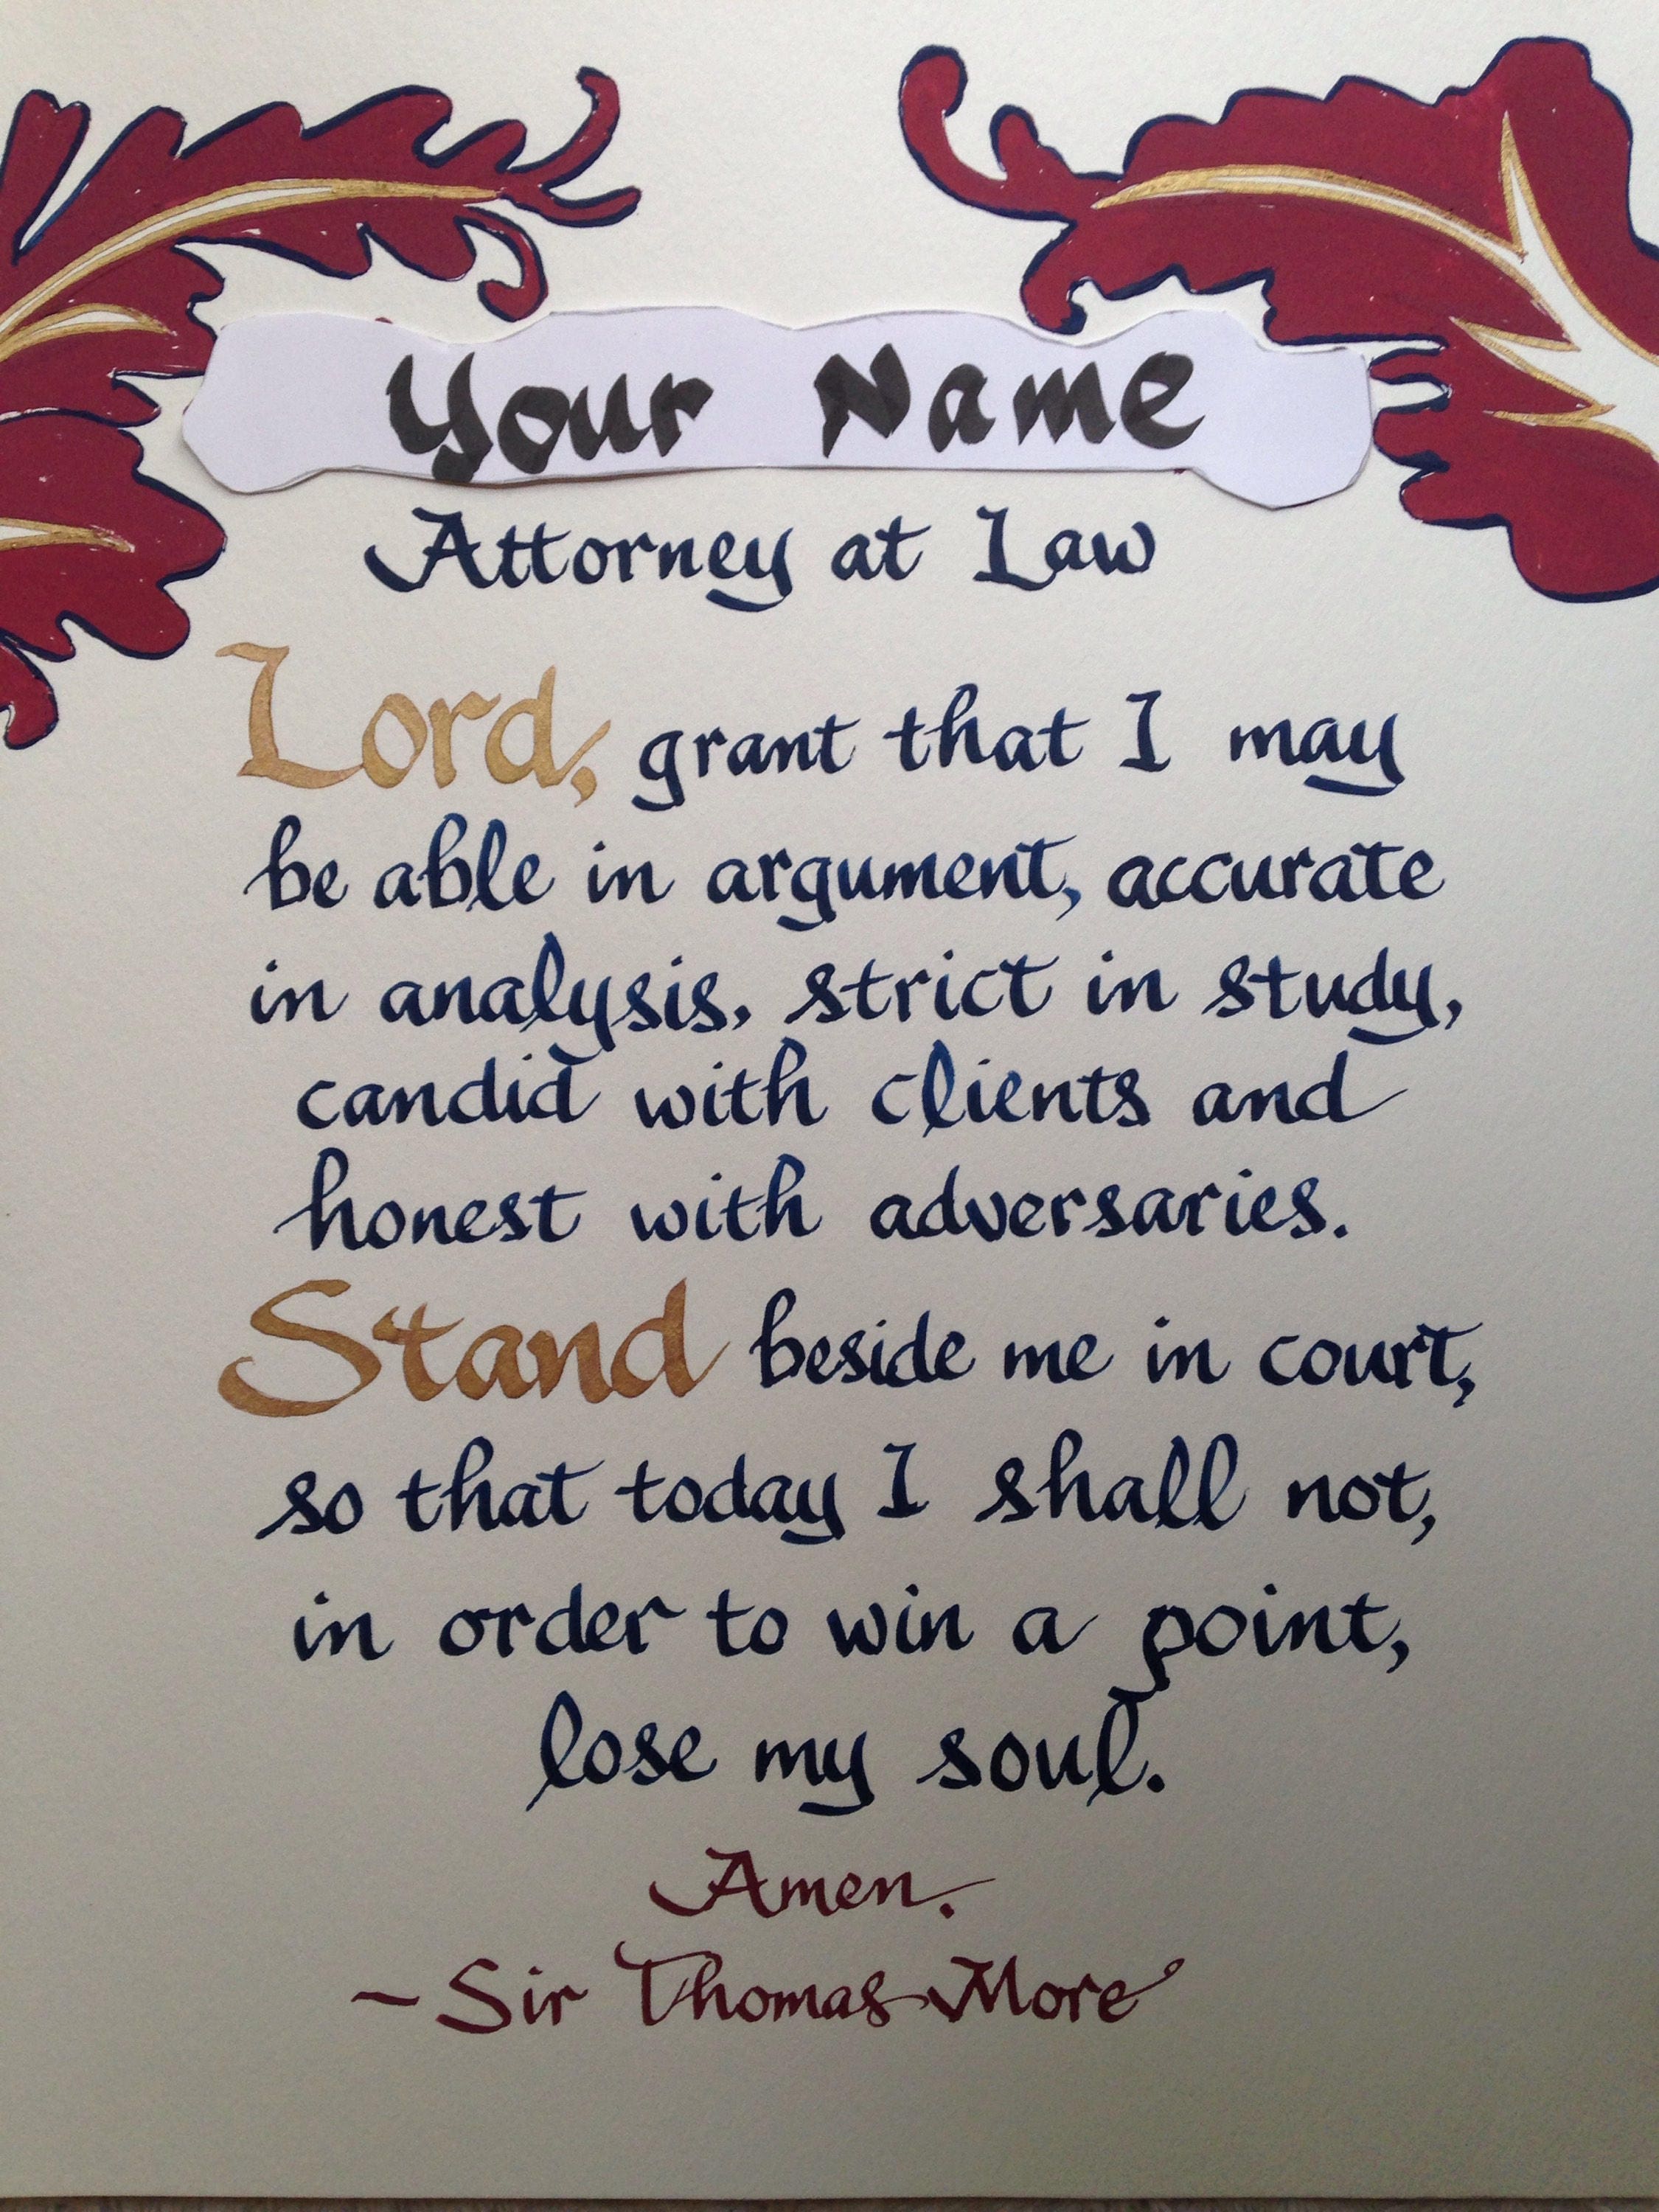 Your Name
Attorney at Law
Lord, grant that I may
be able in argument, accurate
in analysis, strict in study,
candid with clients and
honest with adversaries.
Stand beside me in court,
so that today I shall not,
in order to win a point,
lose my soul.
Amen.
~ Sir Thomas More